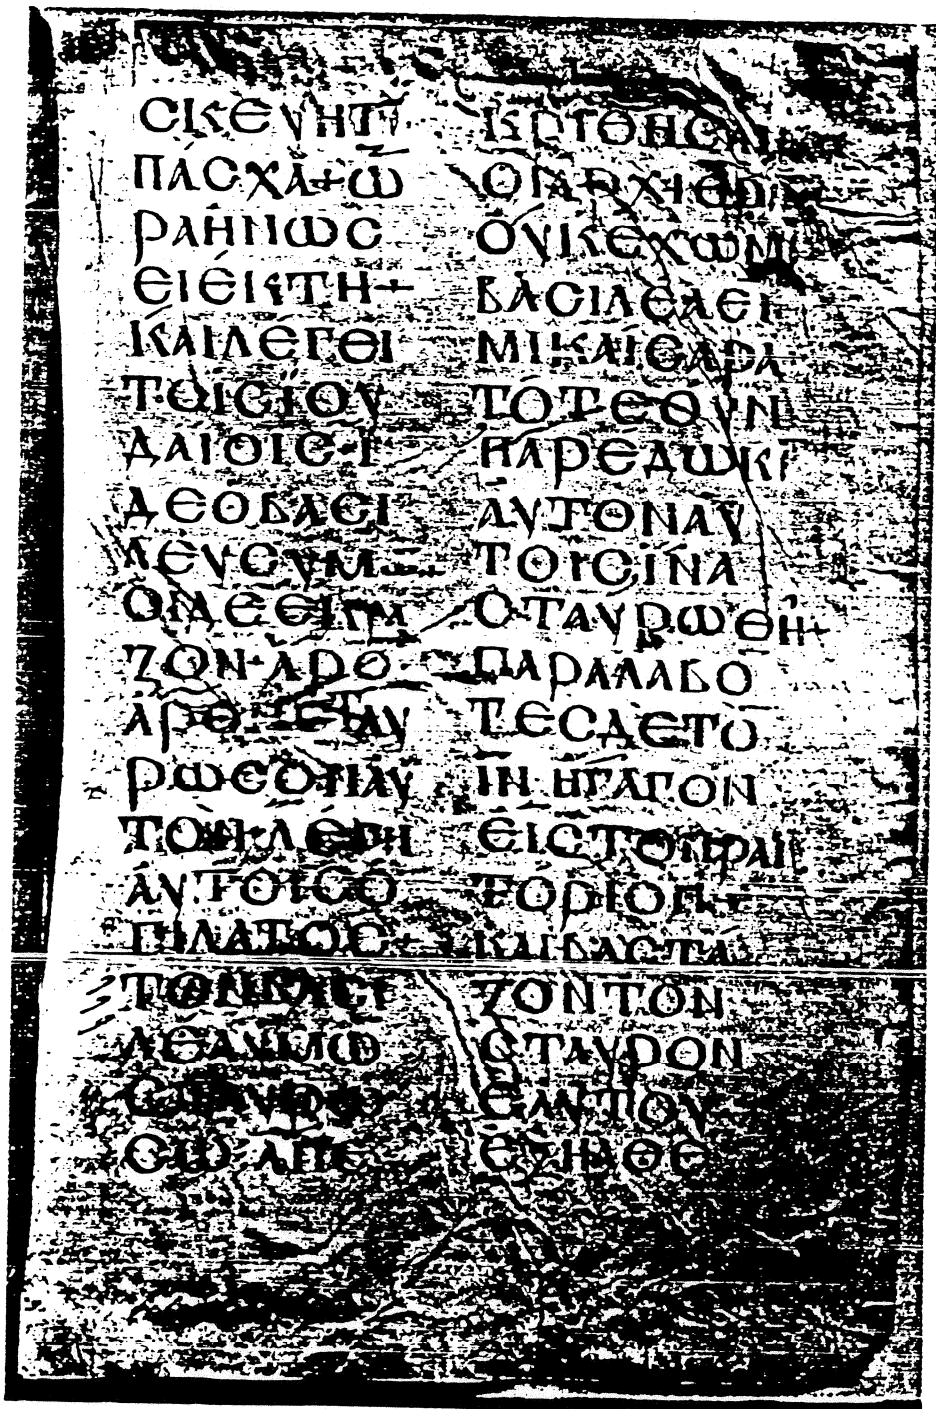 ϹΚΕΥΗΤΥ
ΠΑϹΧΑ+Ω
ΡΑΗΝΩϹ
ΕΙΕΚΤΗ+
ΚΑΙΛΕΓΕΙ
ΤΟΙϹΪΟΥ
ΔΑΙΟΙϹ·Ϊ
ΔΕΟΒΑϹΙ
ΛΕΥϹΥΜ
ΟΙΔΕΕΚΡΑ
ΖΟΝ·ΑΡΟ
ΑΡΟ ϹΤΑΥ
ΡΩϹΟΝΑΥ
ΤΟΝ·ΛΕΓΕΙ
ΑΥΤΟΙϹΟ
ΠΙΛΑΤΟϹ+
ΤΟΝΒΑϹΙ
ΛΕΑΥΜΩ
ϹΤΑΥΡΩ
ϹΩ ΑΠΕ
ΚΡΙΘΗϹΑΝ
ΟΙΑΡΧΙΕΡΙ
ΟΥΚΕΧΩΜ
ΒΑϹΙΛΕΑΕΙ
ΜΙΚΑΙϹΑΡΑ
ΤΟΤΕΟΥΝ
ΠΑΡΕΔΩΚΕ
ΑΥΤΟΝΑΥ
ΤΟΙϹΙΝΑ
ϹΤΑΥΡΩΘΗ+
ΠΑΡΑΛΑΒΟ
ΤΕϹΔΕΤΟ
ΙΝ ΗΓΑΓΟΝ
ΕΙϹΤΟΠΡΑΙ
ΤΟΡΙΟΝ+
ΚΑΙΒΑϹΤΑ
ΖΟΝΤΟΝ
ϹΤΑΥΡΟΝ
ΕΑΥΤΟΥ
ΕΞΗΛΘΕ